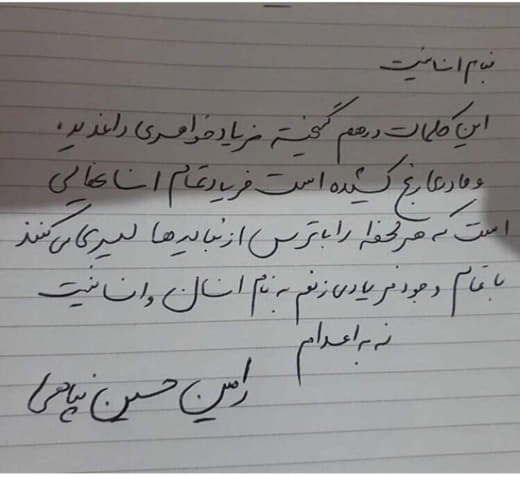 بنام انسانیت
این کلمات درهم گسیخته فریاد خواهری داغدیده،
و مادری رنج کشیده است فریاد تمام انسانهایی
است که هر لحظه را با ترس از نبایدها سپری می کنند
با تمام وجود فریاد می زنم به نام انسان و انسانیت
نه به اعدام
رامین حسین پناهی